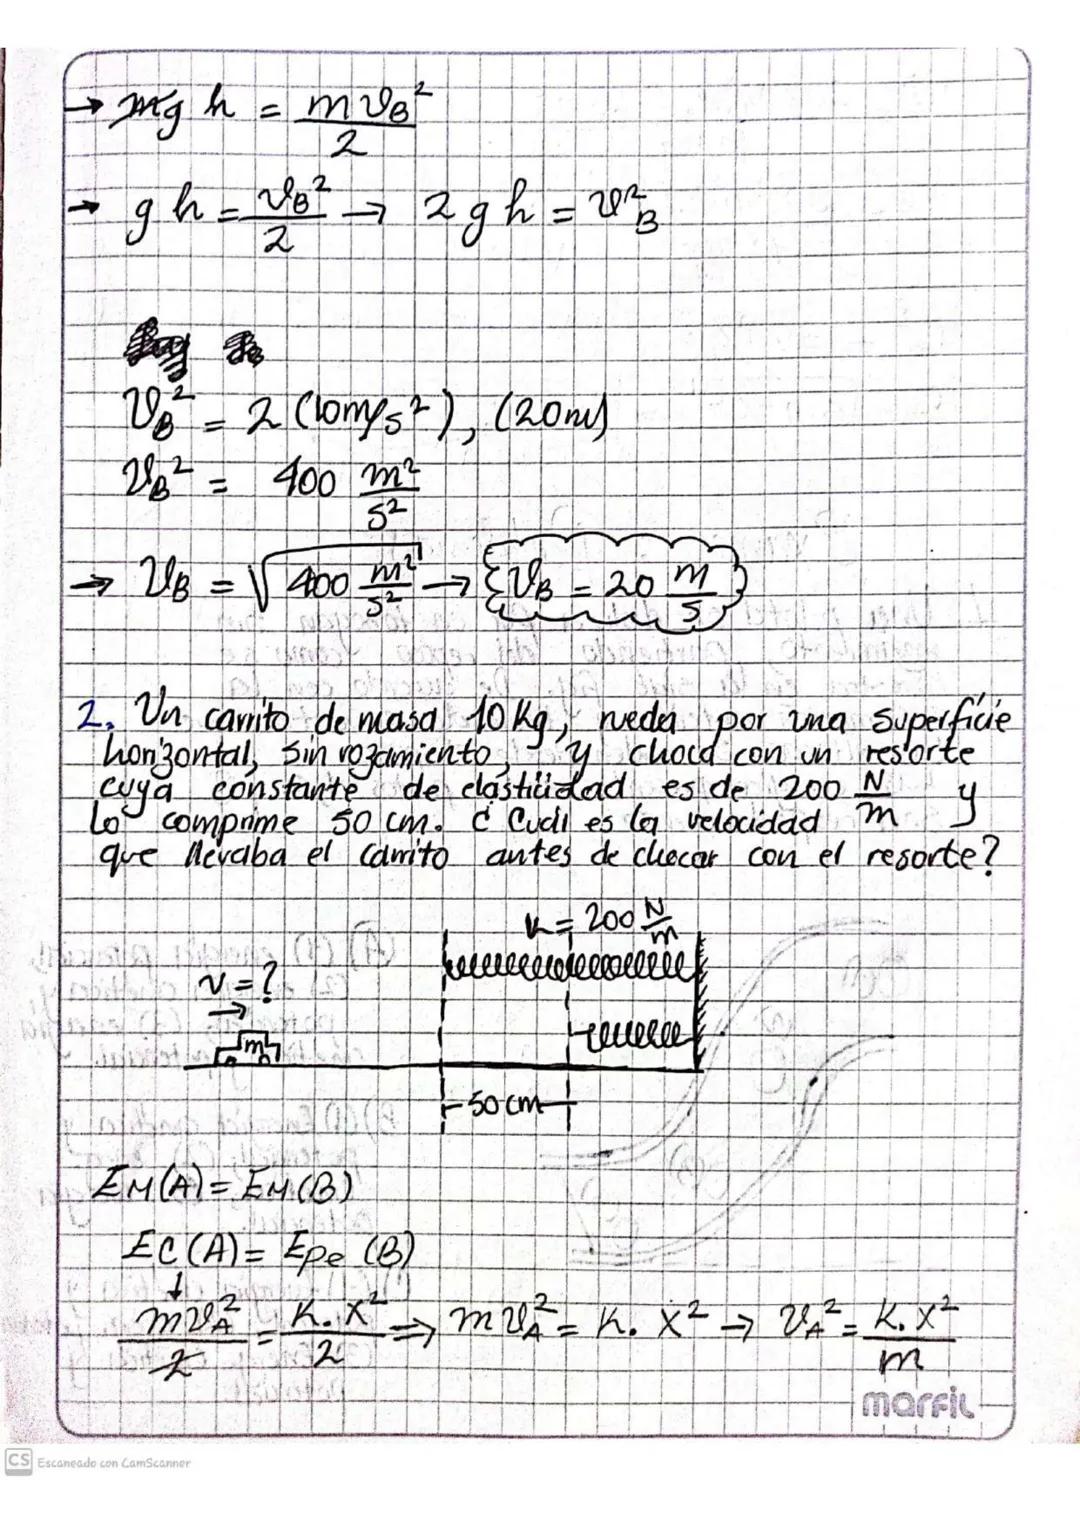 → mg h = m v_B² / 2
→ g h = v_B² / 2 → 2 g h = v²_B
v_B² = 2 (10m/s²), (20m)
v_B² = 400 m²/s²
→ v_B = √400 m²/s² → v_B = 20 m/s
2. Un carrito de masa 10 Kg, rueda por una superficie
horizontal, sin rozamiento, y choca con un resorte
cuya constante de elasticidad es de 200 N/m y
lo comprime 50 cm. ¿ Cuál es la velocidad
que llevaba el carrito antes de chocar con el resorte?
K = 200 N/m
v = ?
m
50 cm
EM(A) = EM(B)
EC(A) = Epe (B)
m v_A² / 2 = K. X² / 2 ⇒ m v_A² = K. X² → v_A² = K. X² / m
marfil
CS Escaneado con CamScanner